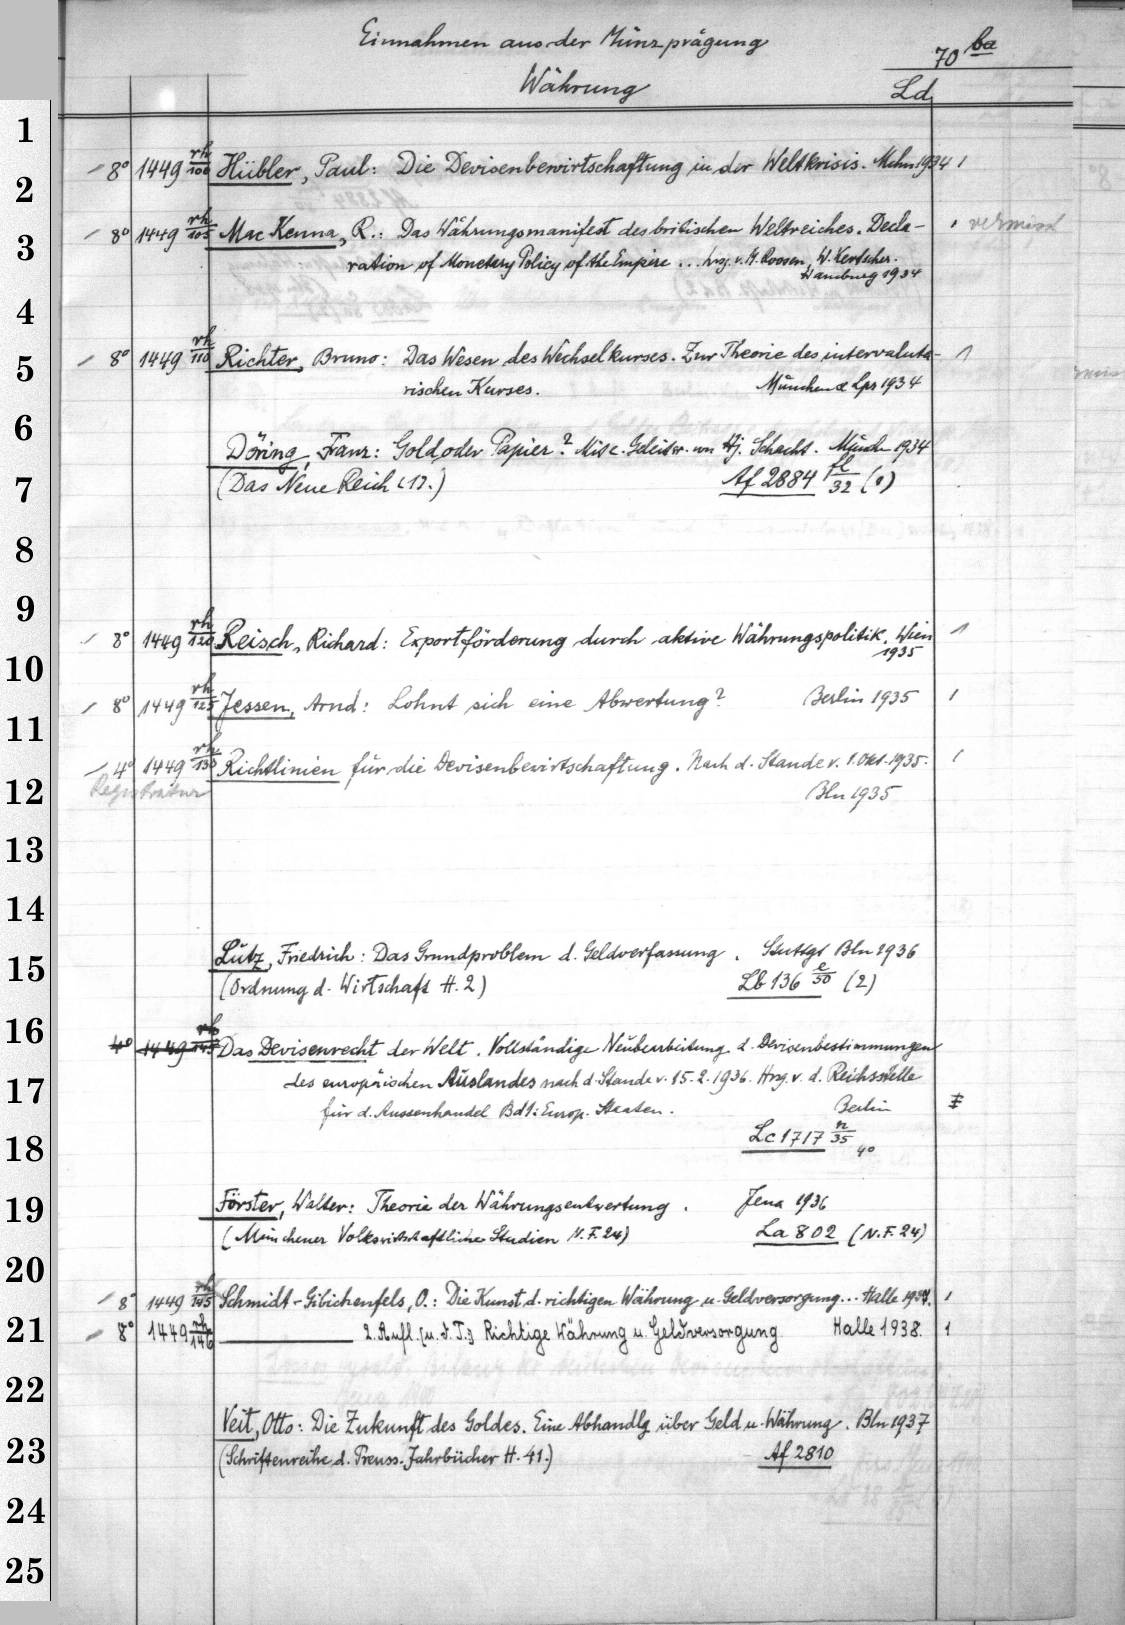 Einnahmen aus der Münzprägung
70 ba
Währung
Ld
1
8° 1449 rh/100 Hübler, Paul: Die Devisenbewirtschaftung in der Weltkrisis. Mchn 1934 1
2
8° 1449 rh/105 Mac Kenna, R.: Das Währungsmanifest des britischen Weltreiches. Decla- vermisst
3
ration of Monetary Policy of the Empire ... hrsg. v. H. Roosen, W. Kertscher.
Hamburg 1934
4
8° 1449 rh/110 Richter, Bruno: Das Wesen des Wechselkurses. Zur Theorie des intervaluta- 1
5
rischen Kurses. München & Lpz 1934
6
Döring, Franz: Gold oder Papier? Mit e. Geleitw. von Hj. Schacht. Münch 1934
7
(Das Neue Reich 17.) Af 2884 fl/32 (1)
8
9
8° 1449 rh/120 Reisch, Richard: Exportförderung durch aktive Währungspolitik. Wien 1
1935
10
8° 1449 rh/125 Jessen, Arnd: Lohnt sich eine Abwertung? Berlin 1935 1
11
4° 1449 rh/130 Richtlinien für die Devisenbewirtschaftung. Nach d. Stande v. 1. Okt. 1935. 1
12
Registratur Bln 1935
13
14
Lutz, Friedrich: Das Grundproblem d. Geldverfassung. Stuttgt Bln 1936
15
(Ordnung d. Wirtschaft H. 2) Lb 136 e/50 (2)
16
4° 1449 rh/145 Das Devisenrecht der Welt. Vollständige Neubearbeitung d. Devisenbestimmungen
17
des europäischen Auslandes nach d. Stande v. 15.2.1936. Hrsg. v. d. Reichsstelle
für d. Aussenhandel Bd 1: Europ. Staaten. Berlin
18
Lc 1717 n/35 4°
19
Förster, Walter: Theorie der Währungsentwertung. Jena 1936
(Münchener Volkswirtschaftliche Studien N.F. 24) La 802 (N.F. 24)
20
8° 1449 rh/145 Schmidt-Gibichenfels, O.: Die Kunst d. richtigen Währung u. Geldversorgung... Halle 1937. 1
21
8° 1449 rh/146 2. Aufl. (u. d. T.:) Richtige Währung u. Geldversorgung Halle 1938. 1
22
Veit, Otto: Die Zukunft des Goldes. Eine Abhandlg über Geld u. Währung. Bln 1937
23
(Schriftenreihe d. Preuss. Jahrbücher H. 41.) Af 2810
24
25